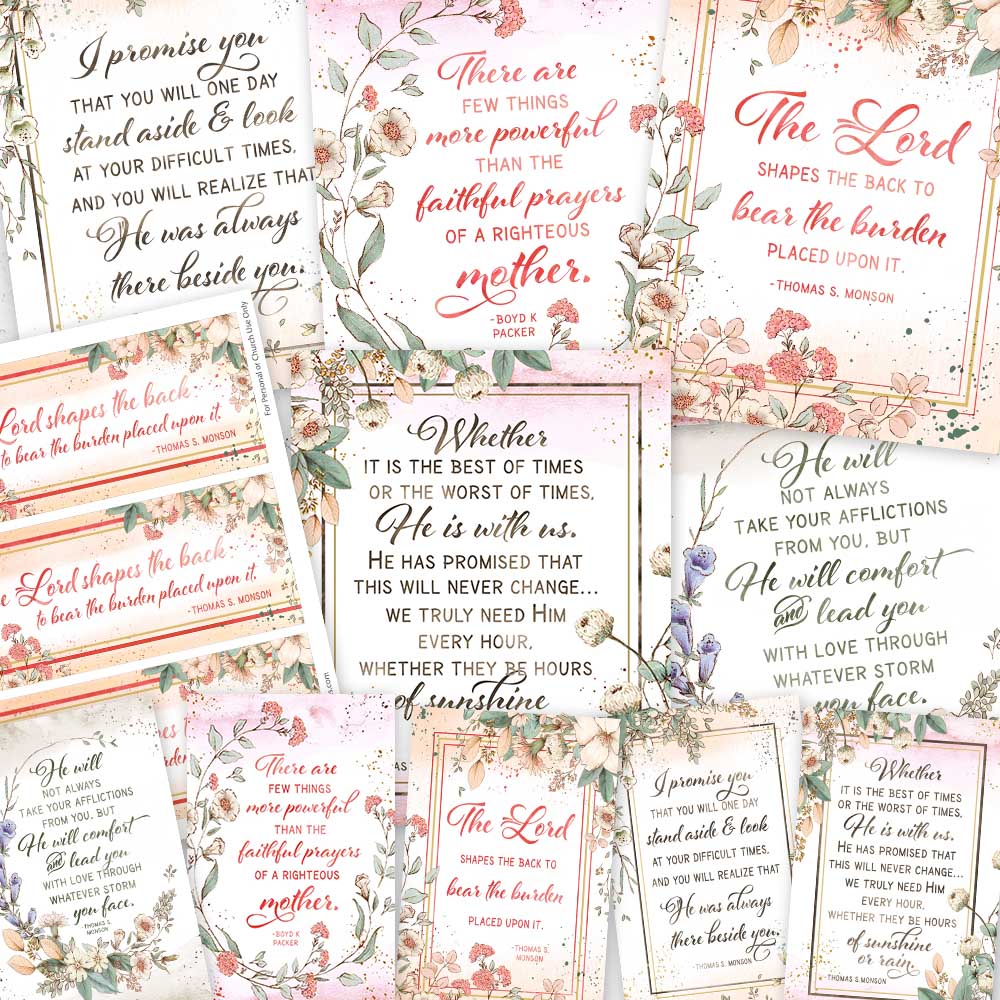 I promise you
THAT YOU WILL ONE DAY
stand aside & look
AT YOUR DIFFICULT TIMES,
AND YOU WILL REALIZE THAT
He was always
there beside you.
There are
FEW THINGS
more powerful
THAN THE
faithful prayers
OF A RIGHTEOUS
mother.
-BOYD K
PACKER
The Lord
SHAPES THE BACK TO
bear the burden
PLACED UPON IT.
-THOMAS S. MONSON
For Personal or Church Use Only
Lord shapes the back
to bear the burden placed upon it.
-THOMAS S. MONSON
Lord shapes the back
to bear the burden placed upon it.
-THOMAS S. MONSON
Whether
IT IS THE BEST OF TIMES
OR THE WORST OF TIMES,
He is with us.
HE HAS PROMISED THAT
THIS WILL NEVER CHANGE...
WE TRULY NEED HIM
EVERY HOUR,
WHETHER THEY BE HOURS
of sunshine
He will
NOT ALWAYS
TAKE YOUR AFFLICTIONS
FROM YOU, BUT
He will comfort
and lead you
WITH LOVE THROUGH
WHATEVER STORM
you face.
He will
NOT ALWAYS
TAKE YOUR AFFLICTIONS
FROM YOU, BUT
He will comfort
and lead you
WITH LOVE THROUGH
WHATEVER STORM
you face.
THOMAS S.
MONSON
There are
FEW THINGS
more powerful
THAN THE
faithful prayers
OF A RIGHTEOUS
mother.
-BOYD K
PACKER
The Lord
SHAPES THE BACK TO
bear the burden
PLACED UPON IT.
-THOMAS S.
MONSON
I promise you
THAT YOU WILL ONE DAY
stand aside & look
AT YOUR DIFFICULT TIMES,
AND YOU WILL REALIZE THAT
He was always
there beside you.
-THOMAS S. MONSON
Whether
IT IS THE BEST OF TIMES
OR THE WORST OF TIMES,
He is with us.
HE HAS PROMISED THAT
THIS WILL NEVER CHANGE...
WE TRULY NEED HIM
EVERY HOUR,
WHETHER THEY BE HOURS
of sunshine
or rain.
-THOMAS S. MONSON